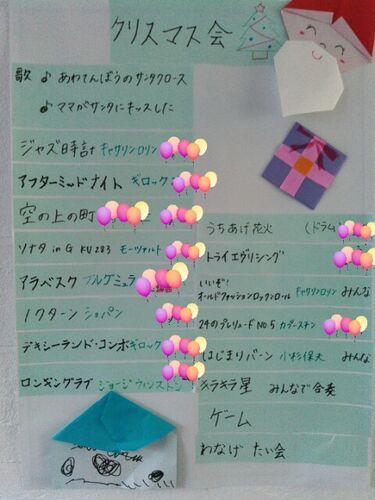 クリスマス会
歌 ♪ あわてんぼうのサンタクロース
♪ ママがサンタにキッスした
ジャズ時計 キャサリンロリン
アフターミッドナイト ギロック
空の上の町
ソナタ in G KV283 モーツァルト
アラベスク ブルグミュラ
ノクターン ショパン
デキシーランド・コンボ ギロック
ロンギングラブ ジョージウィンストン
うちあげ花火 (ドラム
トライエヴリシング
いいぞ!
オールドファッションロックンロール キャサリンロリン みんな
24のプレリュードNO5 カバースキン
はじまりバーン 小杉保夫 みんな
キラキラ星 みんなで合奏
ゲーム
わなげ たい会